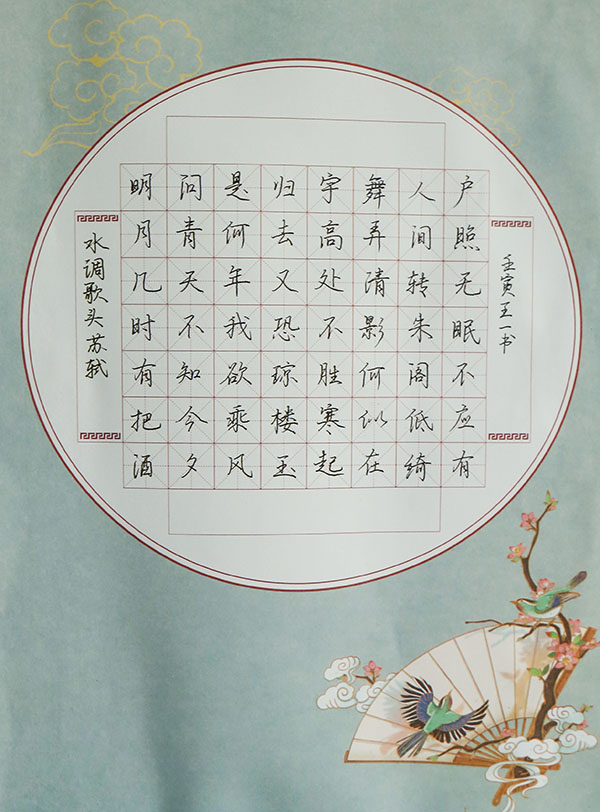 水调歌头苏轼
明月几时有把酒
问青天不知今夕
是何年我欲乘风
归去又恐琼楼玉
宇高处不胜寒起
舞弄清影何似在
人间转朱阁低绮
户照无眠不应有
壬寅王一书